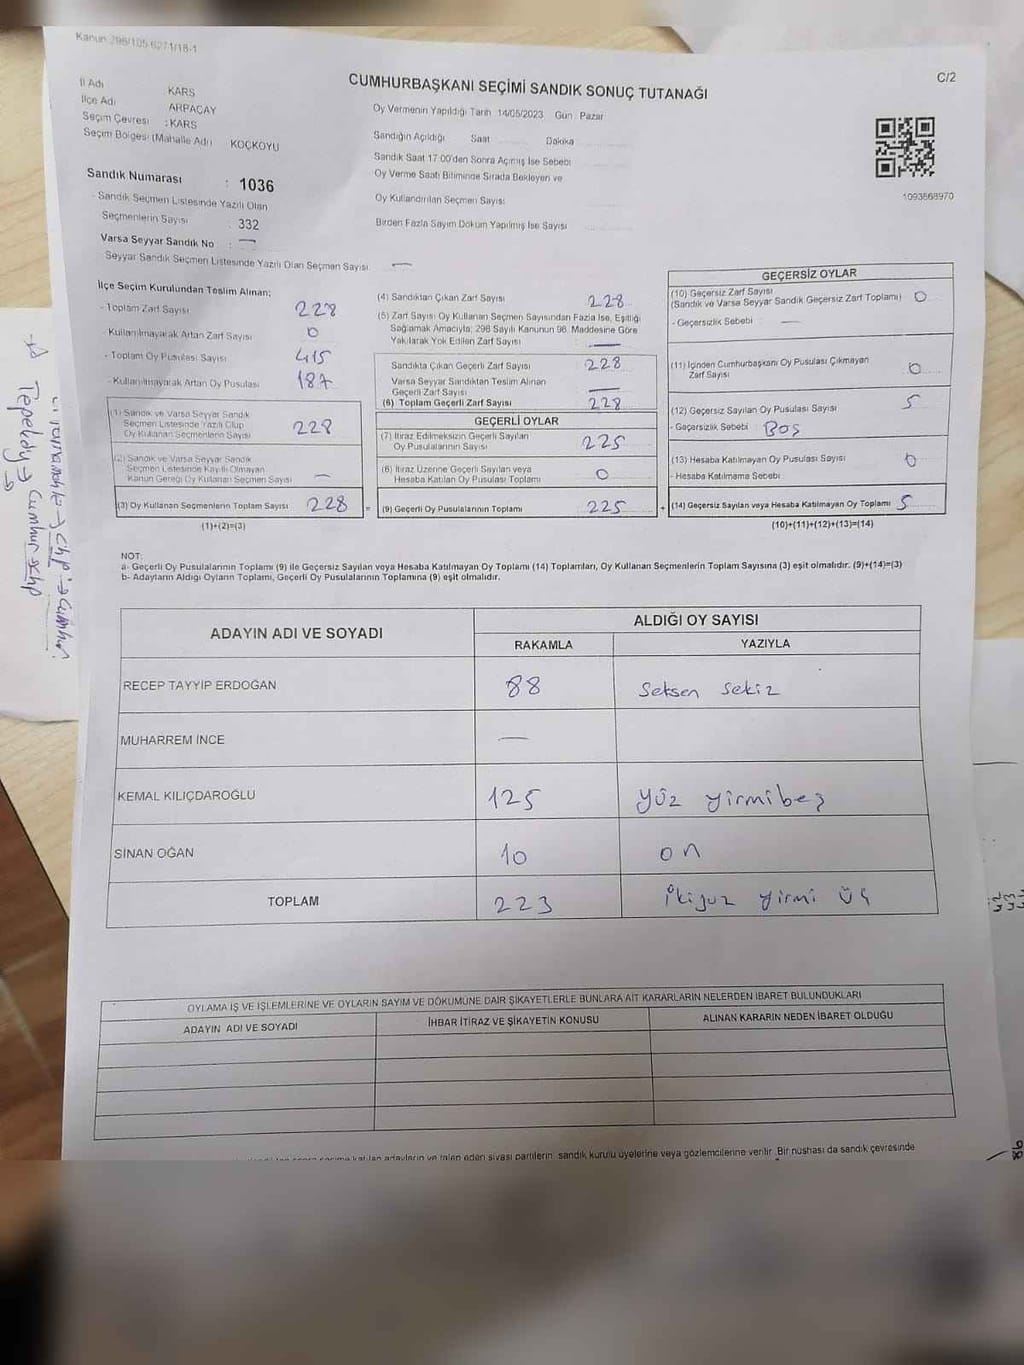 Kanun 298/105 6271/18-1
C/2
CUMHURBAŞKANI SEÇİMİ SANDIK SONUÇ TUTANAĞI
İl Adı : KARS
İlçe Adı : ARPAÇAY
Seçim Çevresi : KARS
Seçim Bölgesi (Mahalle Adı) KOÇKOYU
Sandık Numarası : 1036
- Sandık Seçmen Listesinde Yazılı Olan
Seçmenlerin Sayısı : 332
Varsa Seyyar Sandık No : —
Seyyar Sandık Seçmen Listesinde Yazılı Olan Seçmen Sayısı —
Oy Vermenin Yapıldığı Tarih 14/05/2023 Gün Pazar
Sandığın Açıldığı Saat Dakika
Sandık Saat 17.00'den Sonra Açılmış İse Sebebi
Oy Verme Saati Bitiminde Sırada Bekleyen ve
Oy Kullandırılan Seçmen Sayısı
Birden Fazla Sayım Döküm Yapılmış İse Sayısı
1093868970
İlçe Seçim Kurulundan Teslim Alınan;
- Toplam Zarf Sayısı 228
- Kullanılmayarak Artan Zarf Sayısı 0
- Toplam Oy Pusulası Sayısı 415
- Kullanılmayarak Artan Oy Pusulası 187
(1) Sandık ve Varsa Seyyar Sandık
Seçmen Listesinde Yazılı Olup
Oy Kullanan Seçmenlerin Sayısı 228
(2) Sandık ve Varsa Seyyar Sandık
Seçmen Listesinde Kayıtlı Olmayan
Kanun Gereği Oy Kullanan Seçmen Sayısı —
(3) Oy Kullanan Seçmenlerin Toplam Sayısı 228
(1)+(2)=(3)
(4) Sandıktan Çıkan Zarf Sayısı 228
(5) Zarf Sayısı Oy Kullanan Seçmen Sayısından Fazla İse, Eşitliği
Sağlamak Amacıyla; 298 Sayılı Kanunun 98. Maddesine Göre
Yakılarak Yok Edilen Zarf Sayısı —
Sandıkta Çıkan Geçerli Zarf Sayısı 228
Varsa Seyyar Sandıktan Teslim Alınan
Geçerli Zarf Sayısı —
(6) Toplam Geçerli Zarf Sayısı 228
GEÇERLİ OYLAR
(7) İtiraz Edilmeksizin Geçerli Sayılan
Oy Pusulalarının Sayısı 225
(8) İtiraz Üzerine Geçerli Sayılan veya
Hesaba Katılan Oy Pusulası Toplamı 0
= (9) Geçerli Oy Pusulalarının Toplamı 225
GEÇERSİZ OYLAR
(10) Geçersiz Zarf Sayısı
(Sandık ve Varsa Seyyar Sandık Geçersiz Zarf Toplamı) 0
- Geçersizlik Sebebi : —
(11) İçinden Cumhurbaşkanı Oy Pusulası Çıkmayan
Zarf Sayısı 0
(12) Geçersiz Sayılan Oy Pusulası Sayısı 5
- Geçersizlik Sebebi : Boş
(13) Hesaba Katılmayan Oy Pusulası Sayısı 0
- Hesaba Katılmama Sebebi
+ (14) Geçersiz Sayılan veya Hesaba Katılmayan Oy Toplamı 5
(10)+(11)+(12)+(13)=(14)
NOT:
a- Geçerli Oy Pusulasının Toplamı (9) ile Geçersiz Sayılan veya Hesaba Katılmayan Oy Toplamı (14) Toplamları, Oy Kullanan Seçmenlerin Toplam Sayısına (3) eşit olmalıdır. (9)+(14)=(3)
b- Adayların Aldığı Oyların Toplamı, Geçerli Oy Pusulalarının Toplamına (9) eşit olmalıdır.
ADAYIN ADI VE SOYADI
ALDIĞI OY SAYISI
RAKAMLA YAZIYLA
RECEP TAYYİP ERDOĞAN 88 seksen sekiz
MUHARREM İNCE —
KEMAL KILIÇDAROĞLU 125 yüz yirmibeş
SİNAN OĞAN 10 on
TOPLAM 223 ikiyüz yirmi üç
OYLAMA İŞ VE İŞLEMLERİNE VE OYLARIN SAYIM VE DÖKÜMÜNE DAİR ŞİKAYETLERLE BUNLARA AİT KARARLARIN NELERDEN İBARET BULUNDUKLARI
ADAYIN ADI VE SOYADI İHBAR İTİRAZ VE ŞİKAYETİN KONUSU ALINAN KARARIN NEDEN İBARET OLDUĞU
katılan adayların ve talep eden siyasi partilerin sandık kurulu üyelerine veya gözlemcilerine verilir. Bir nüshası da sandık çevresinde
→ chp → cumhur
Tepeköy → Cumhur → chp